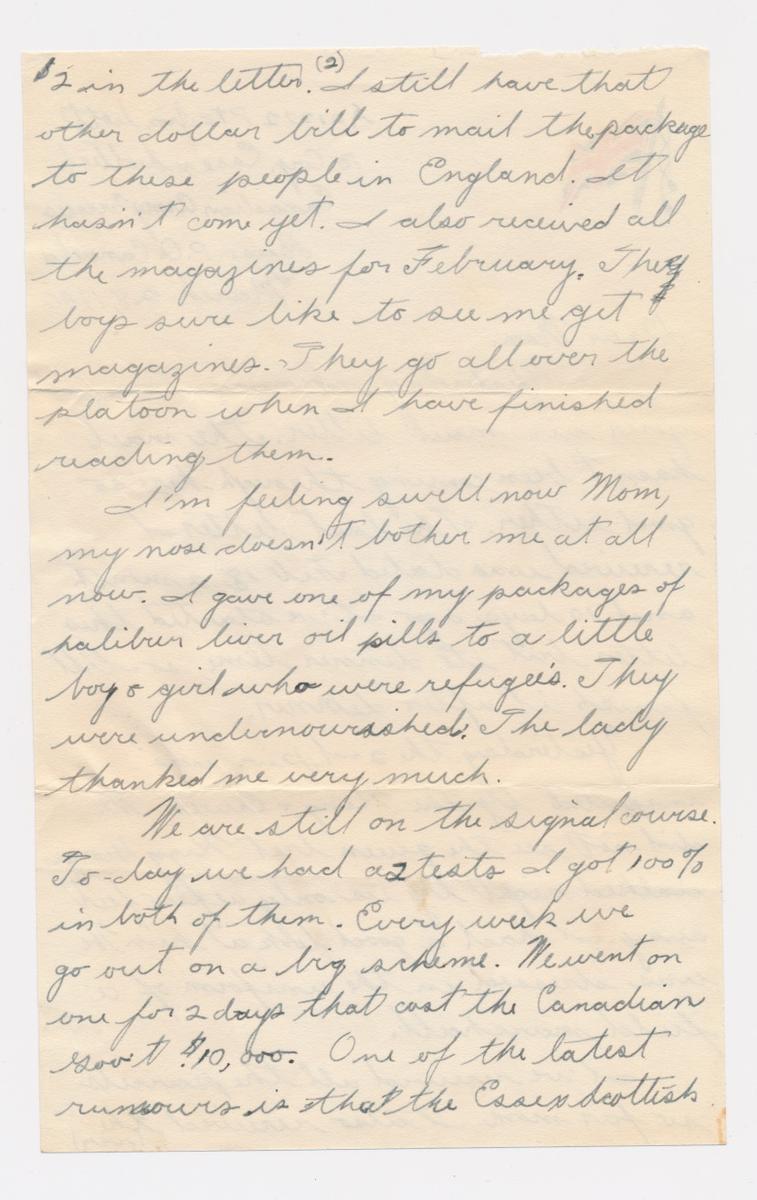 (2)
$2 in the letter. I still have that
other dollar bill to mail the package
to these people in England. It
hasn't come yet. I also received all
the magazines for February. The
boys sure like to see me get
magazines. They go all over the
platoon when I have finished
reading them.
I'm feeling swell now Mom,
my nose doesn't bother me at all
now. I gave one of my packages of
halibur liver oil pills to a little
boy & girl who were refugee's. They
were undernourished. The lady
thanked me very much.
We are still on the signal course.
To-day we had 2 tests I got 100%
in both of them. Every week we
go out on a big scheme. We went on
one for 2 days that cost the Canadian
Gov't $10,000. One of the latest
rumours is that the Essex Scottish